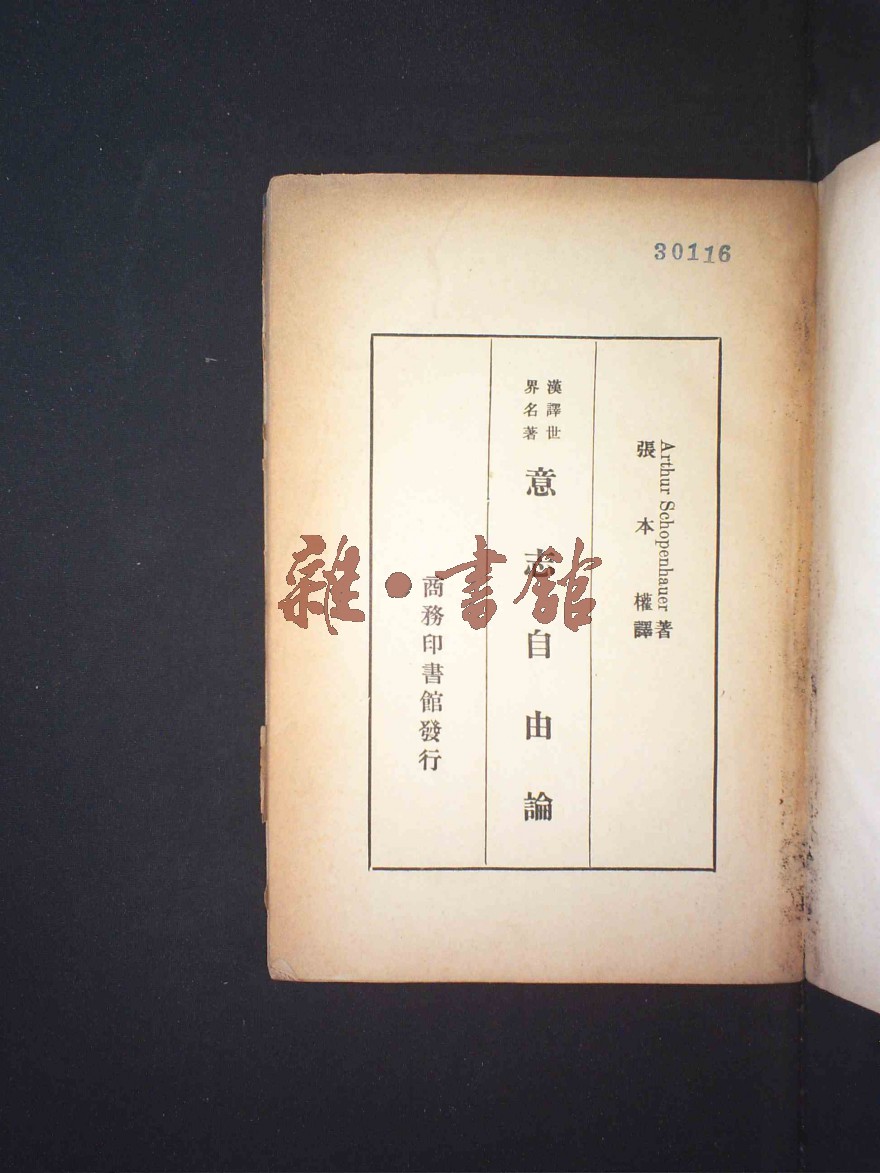 30116
Arthur Schopenhauer著
張本權譯
漢譯世
界名著
意志自由論
商務印書館發行
雜·書館